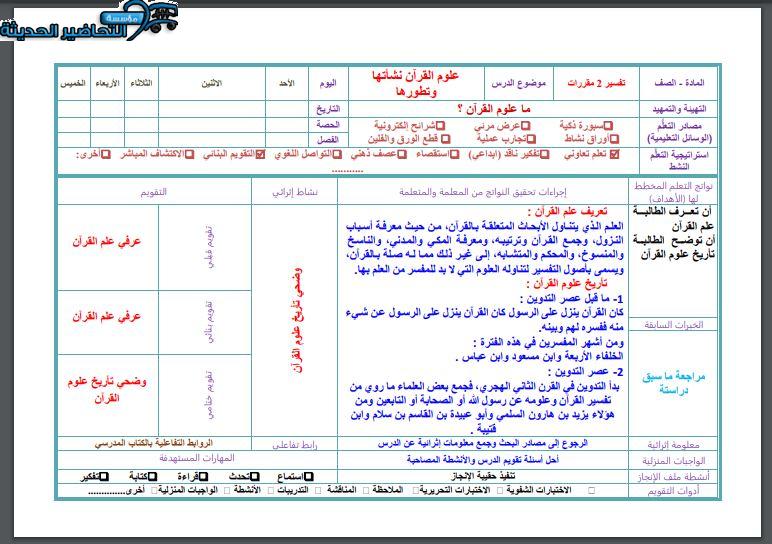 مؤسسة
التحاضير الحديثة
المادة - الصف
تفسير 2 مقررات
موضوع الدرس
علوم القرآن نشأتها
وتطورها
اليوم
الأحد
الاثنين
الثلاثاء
الأربعاء
الخميس
التهيئة والتمهيد
ما علوم القرآن ؟
التاريخ
مصادر التعلم
(الوسائل التعليمية)
سبورة ذكية
عرض مرئي
شرائح إلكترونية
الحصة
أوراق نشاط
تجارب عملية
قطع الورق والفلين
الفصل
استراتيجية التعلم
النشط
تعلم تعاوني
تفكير ناقد (ابداعي)
استقصاء
عصف ذهني
التواصل اللغوي
التقويم البنائي
الاكتشاف المباشر
أخرى:
...........
نواتج التعلم المخطط
لها (الأهداف)
إجراءات تحقيق النواتج من المعلمة والمتعلمة
نشاط إثرائي
التقويم
أن تعرف الطالبة
علم القرآن
أن توضح الطالبة
تأريخ علوم القرآن
الخبرات السابقة
مراجعة ما سبق
دراستة
تعريف علم القرآن :
العلم الذي يتناول الأبحاث المتعلقة بالقرآن، من حيث معرفة أسباب
النزول، وجمع القرآن وترتيبه، ومعرفة المكي والمدني، والناسخ
والمنسوخ، والمحكم والمتشابه، إلى غير ذلك مما له صلة بالقرآن،
ويسمى بأصول التفسير لتناوله العلوم التي لا بد للمفسر من العلم بها.
تأريخ علوم القرآن :
1- ما قبل عصر التدوين :
كان القرآن ينزل على الرسول كان القرآن ينزل على الرسول عن شيء
منه ففسره لهم وبينه.
ومن أشهر المفسرين في هذه الفترة :
الخلفاء الأربعة وابن مسعود وابن عباس .
2- عصر التدوين :
بدأ التدوين في القرن الثاني الهجري، فجمع بعض العلماء ما روي من
تفسير القرآن وعلومه عن رسول الله أو الصحابة أو التابعين ومن
هؤلاء يزيد بن هارون السلمي وأبو عبيدة بن القاسم بن سلام وابن
قتيبة .
وضحي تأريخ علوم القرآن
تقويم قبلي
عرفي علم القرآن
تقويم بنائي
عرفي علم القرآن
تقويم ختامي
وضحي تأريخ علوم
القرآن
معلومة إثرائية
الرجوع إلى مصادر البحث وجمع معلومات إثرائية عن الدرس
رابط تفاعلي
الروابط التفاعلية بالكتاب المدرسي
الواجبات المنزلية
أحل أسئلة تقويم الدرس والأنشطة المصاحبة
المهارات المستهدفة
أنشطة ملف الإنجاز
تنفيذ حقيبة الإنجاز
استماع
تحدث
قراءة
كتابة
تفكير
أدوات التقويم
الاختبارات الشفوية
الاختبارات التحريرية
الملاحظة
المناقشة
التدريبات
الأنشطة
الواجبات المنزلية
أخرى...............